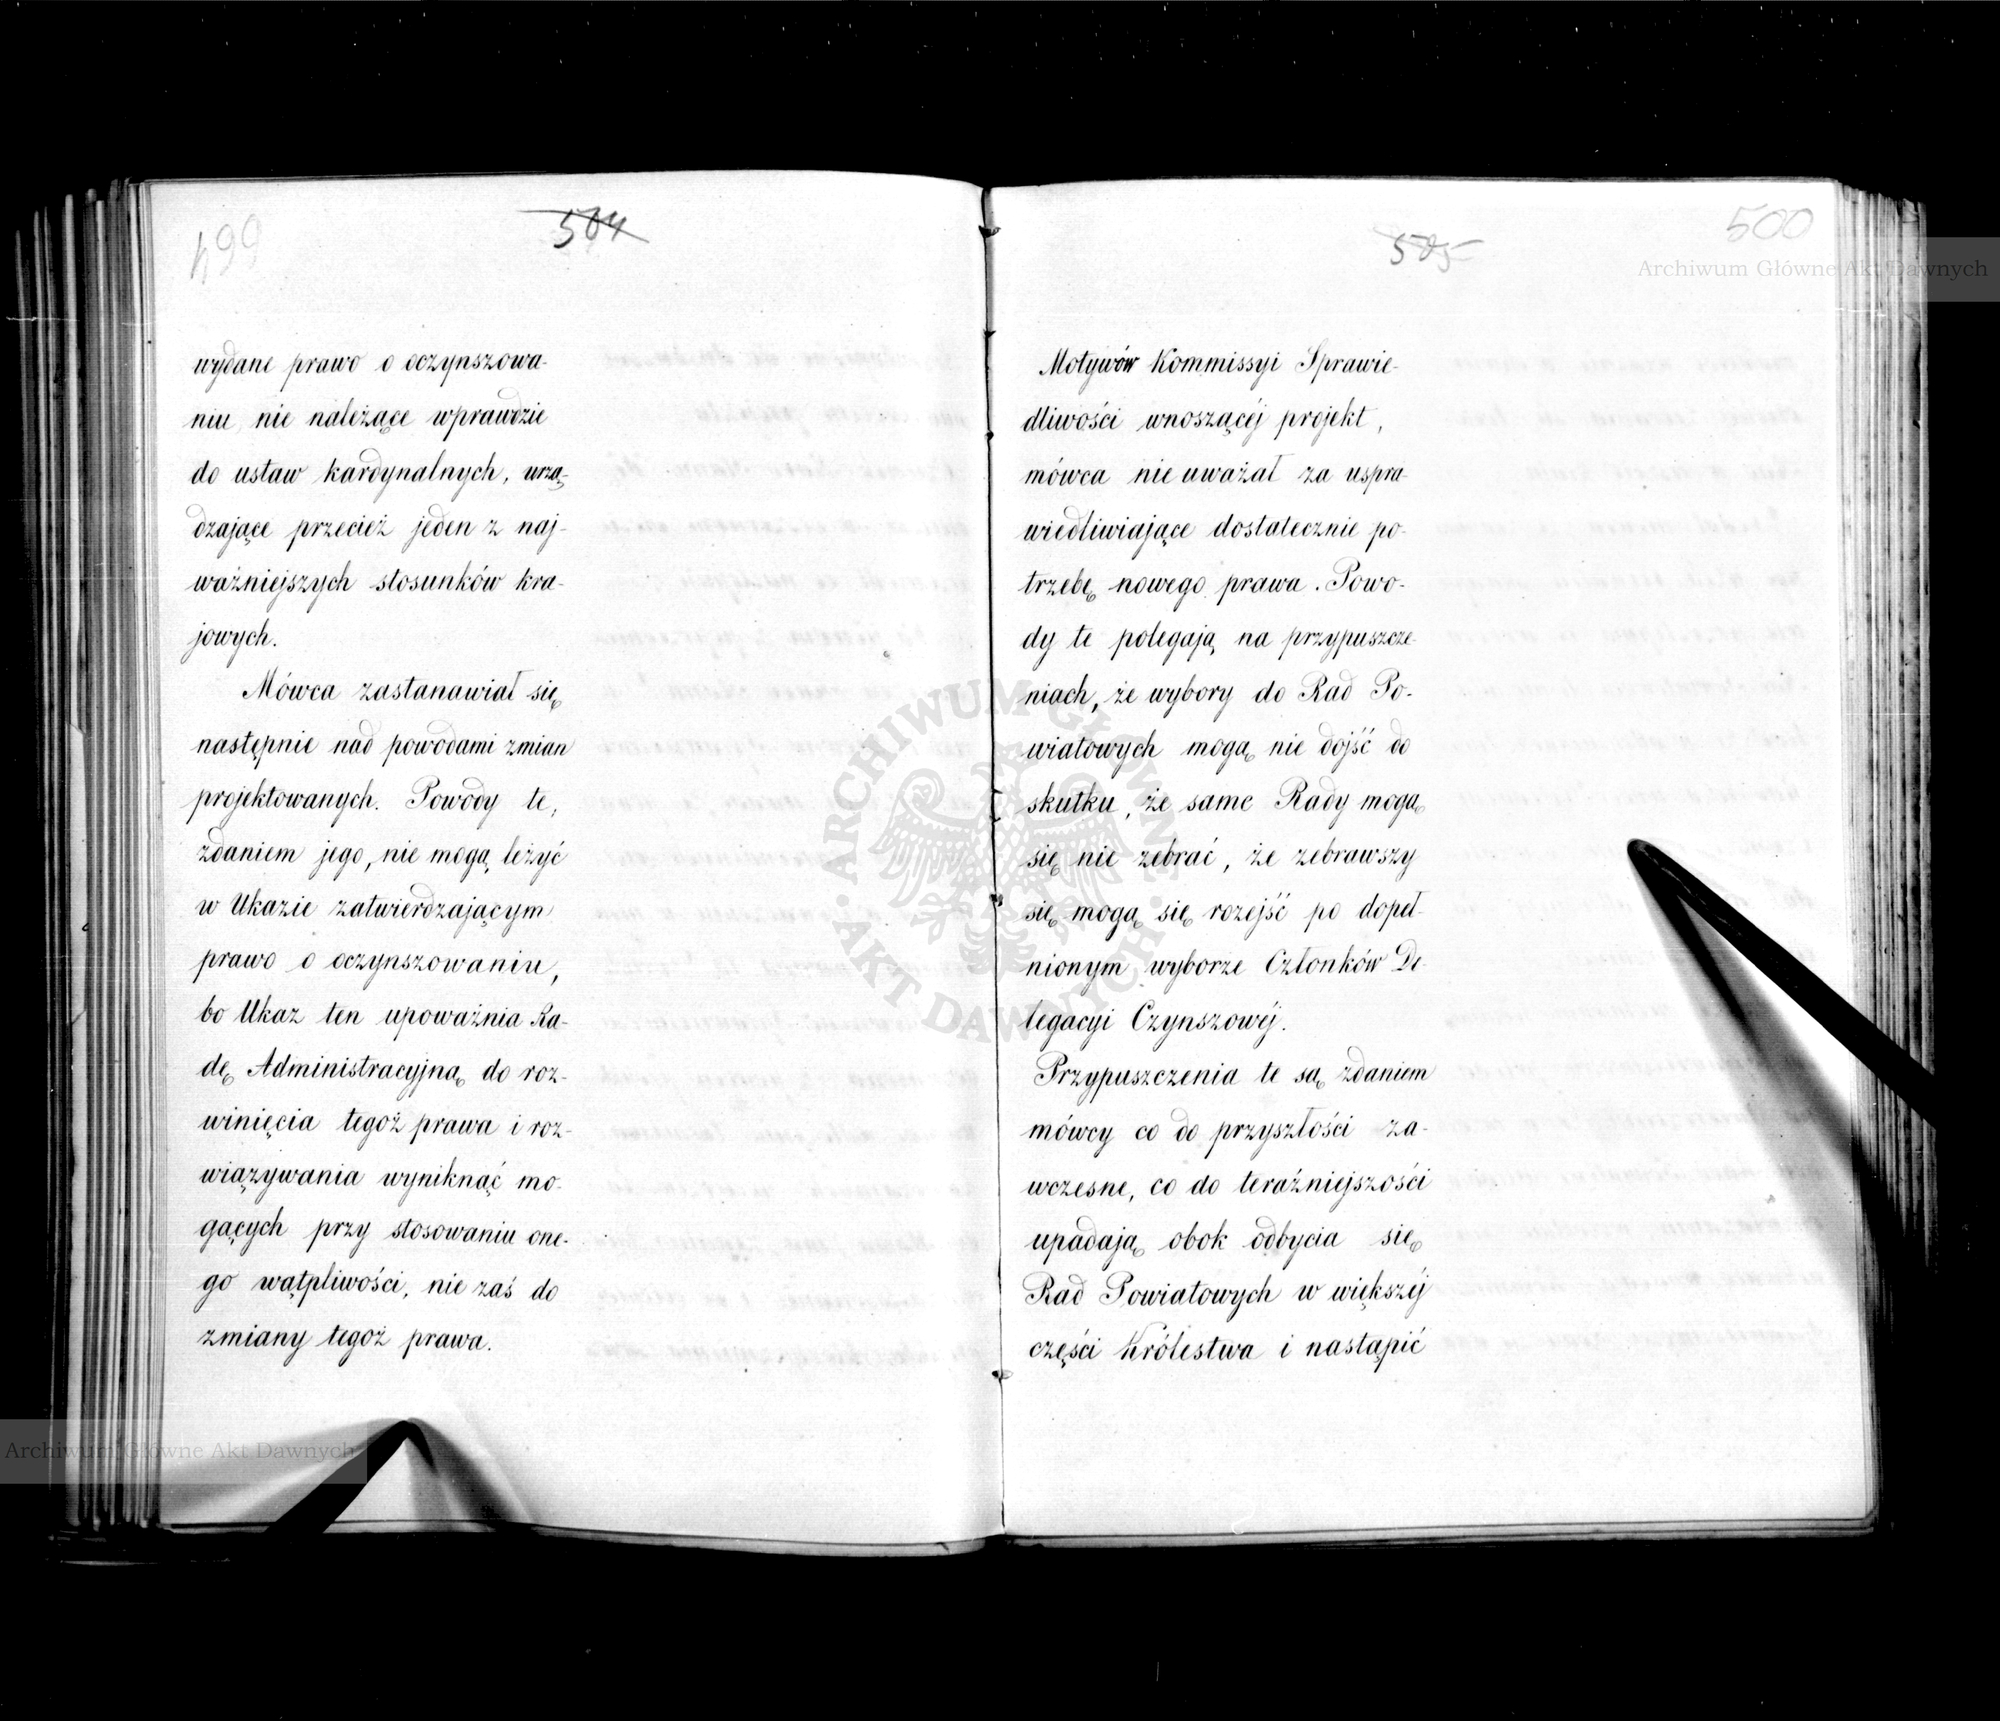 499
504
wydane prawo o oczynszowa-
niu, nie należące wprawdzie
do ustaw kardynalnych, urzą-
dzające przecież jeden z naj-
ważniejszych stosunków kra-
jowych.
Mówca zastanawiał się
następnie nad powodami zmian
projektowanych. Powody te,
zdaniem jego, nie mogą leżyć
w Ukazie zatwierdzającym
prawo o oczynszowaniu,
bo Ukaz ten upoważnia Ra-
dę Administracyjną do roz-
winięcia tegoż prawa i roz-
wiązywania wyniknąć mo-
gących przy stosowaniu one-
go wątpliwości, nie zaś do
zmiany tegoż prawa.
500
505
Motywów Kommissyi Sprawie-
dliwości wnoszącéj projekt,
mówca nie uważał za uspra-
wiedliwiające dostatecznie po-
trzebę nowego prawa. Powo-
dy te polegają na przypuszcze-
niach, że wybory do Rad Po-
wiatowych mogą nie dojść do
skutku, że same Rady mogą
się nie zebrać, że zebrawszy
się mogą się rozejść po dopeł-
nionym wyborze Członków De-
legacyi Czynszowéj.
Przypuszczenia te są zdaniem
mówcy co do przyszłości za-
wczesne, co do teraźniejszości
upadają obok odbycia się
Rad Powiatowych w większéj
części Królestwa i nastąpić
Archiwum Główne Akt Dawnych
ARCHIWUM GŁÓWNE AKT DAWNYCH
Archiwum Główne Akt Dawnych